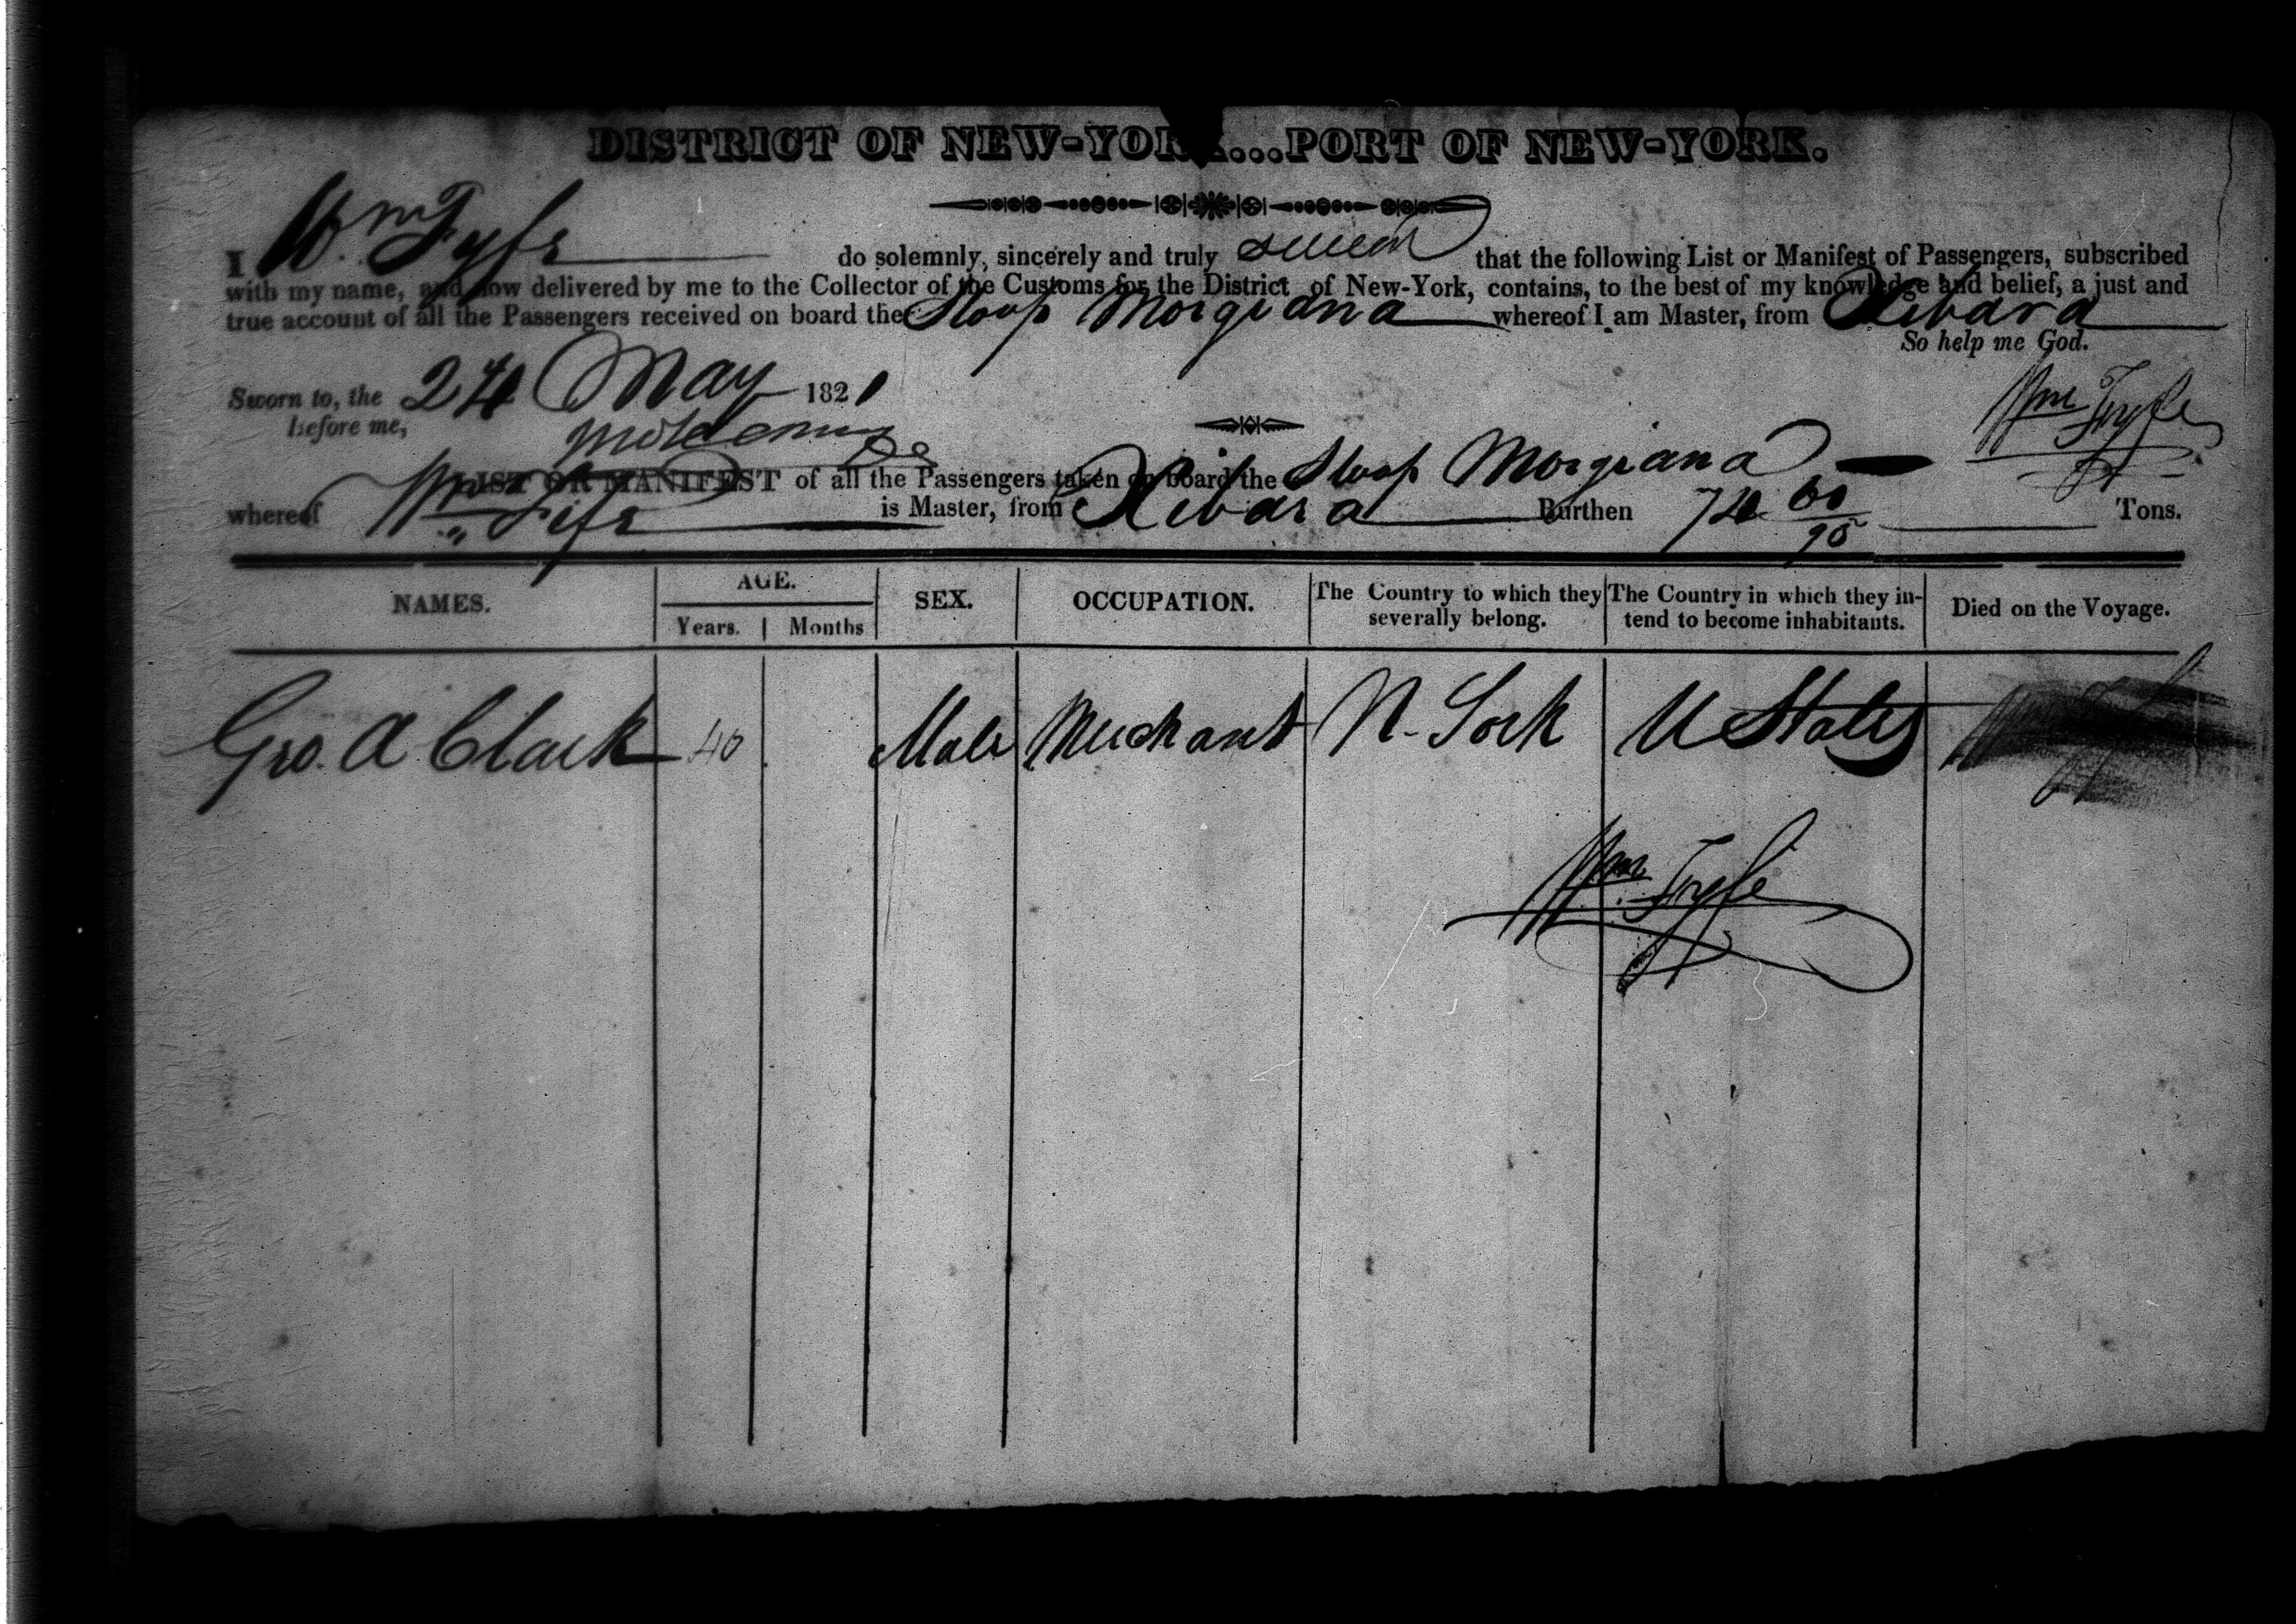 DISTRICT OF NEW-YORK...PORT OF NEW-YORK.
I Wm Fyfe do solemnly, sincerely and truly swear that the following List or Manifest of Passengers, subscribed
with my name, and now delivered by me to the Collector of the Customs for the District of New-York, contains, to the best of my knowledge and belief, a just and
true account of all the Passengers received on board the Sloop Morgiana whereof I am Master, from Xibara
So help me God.
Sworn to, the 24 May 1821
before me,
Wm Fyfe
LIST OR MANIFEST of all the Passengers taken on board the Sloop Morgiana
whereof Wm Fife is Master, from Xibara Burthen 74 60/95 Tons.
NAMES. AGE. SEX. OCCUPATION. The Country to which they severally belong. The Country in which they intend to become inhabitants. Died on the Voyage.
Years. Months
Geo. A Clark 40 Male Merchant N. York U States
Wm Fyfe